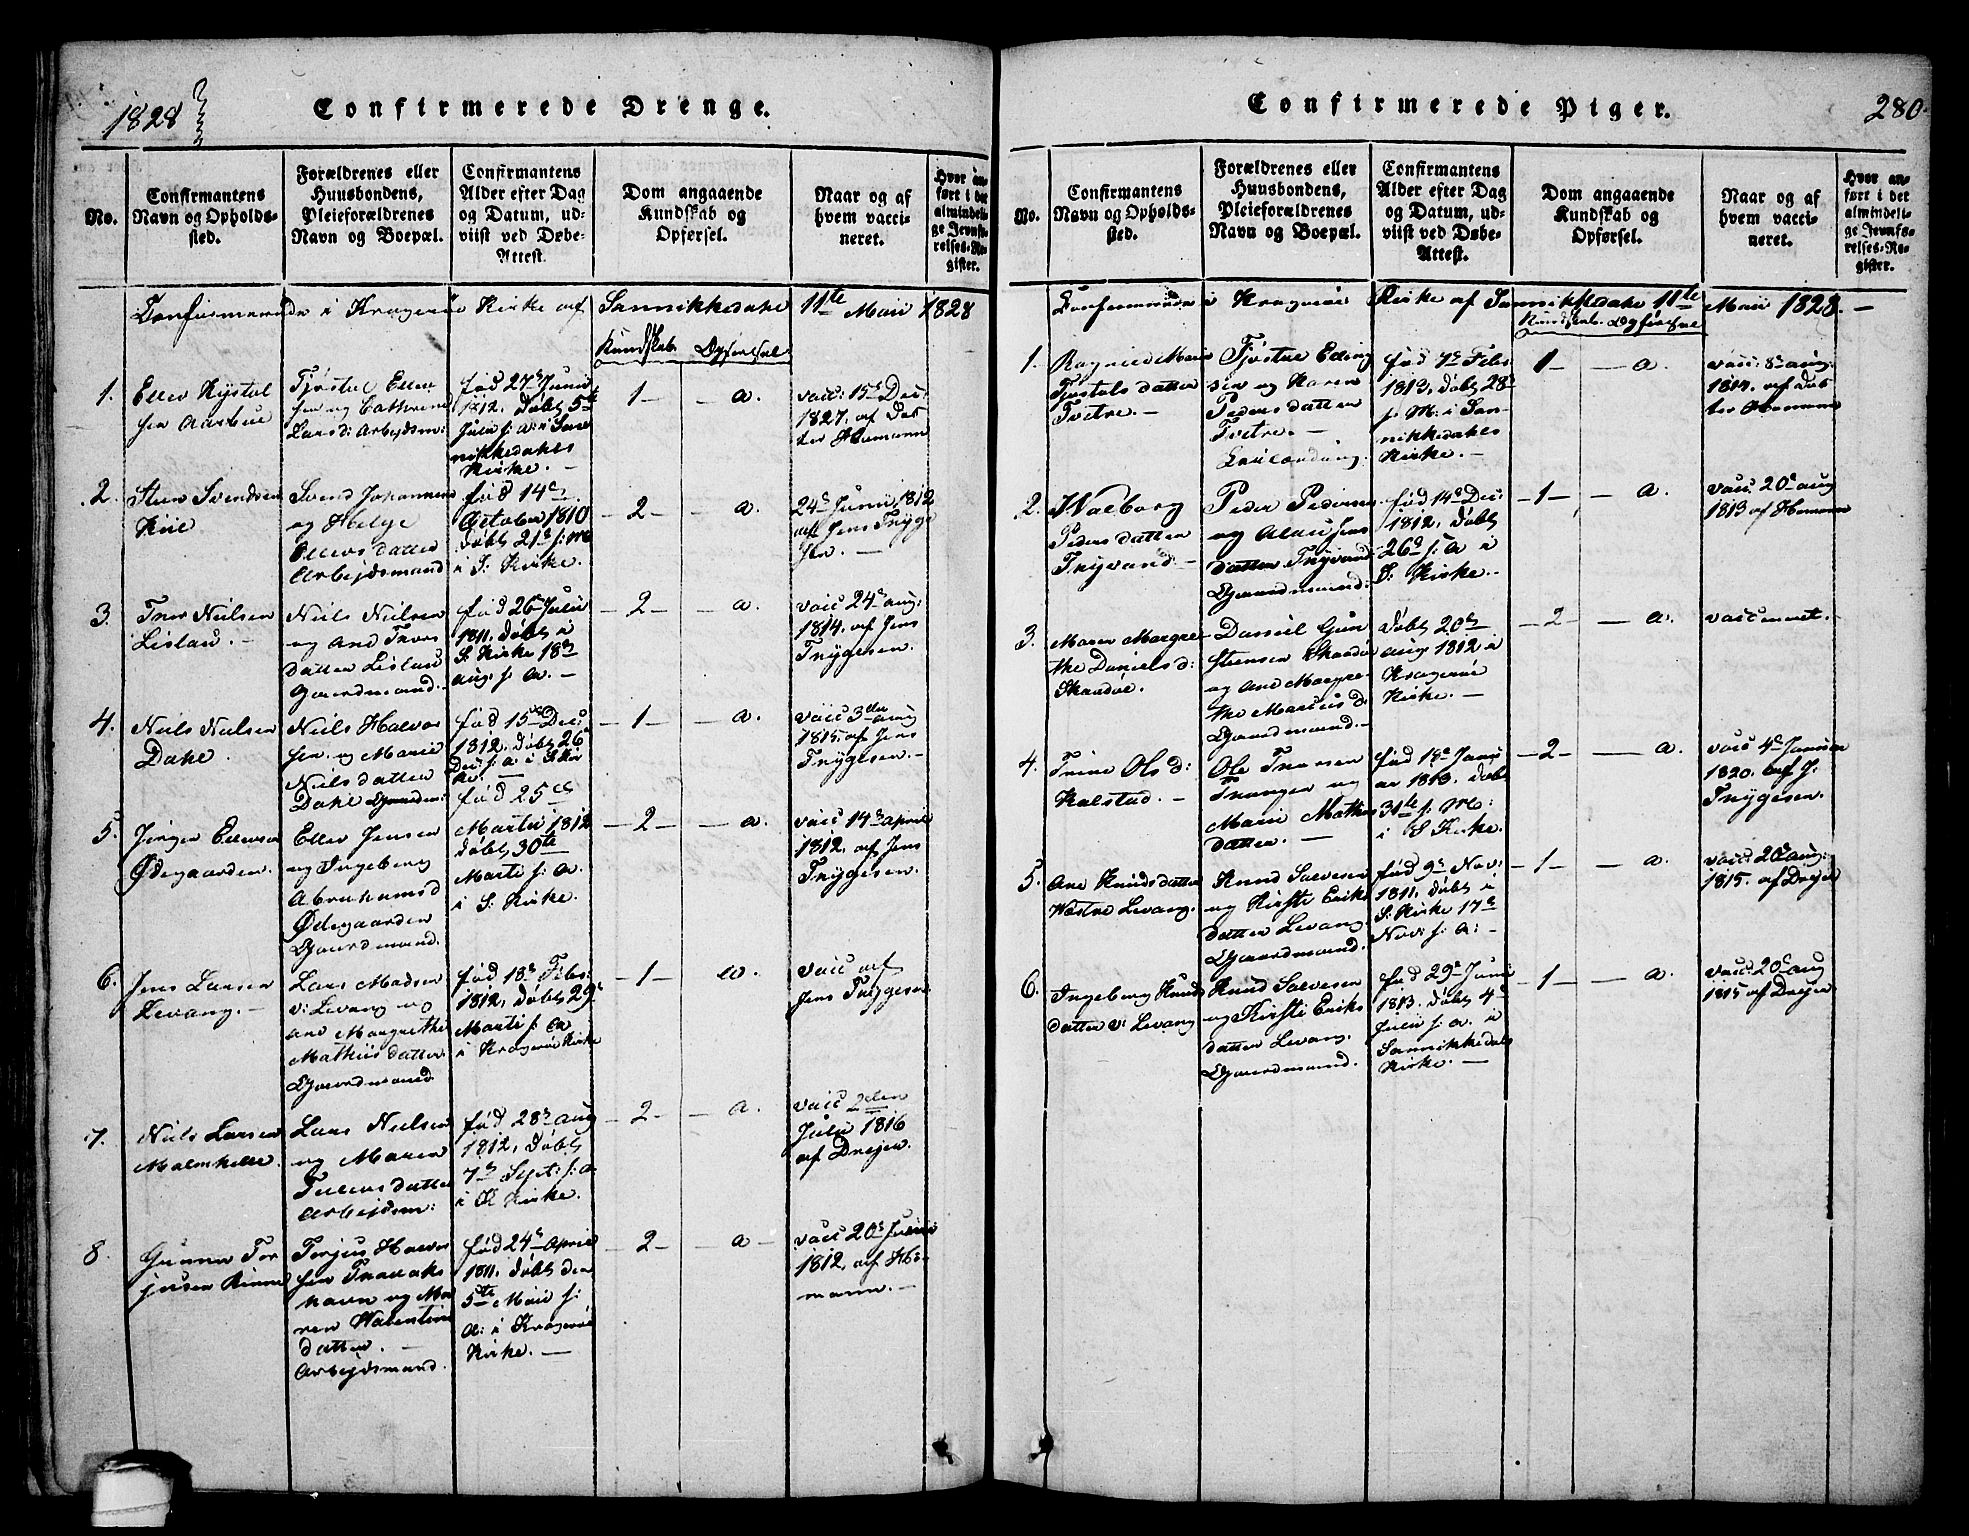 1828
Confirmerede Drenge.
No.
Confirmantens
Navn og Opholds-
sted.
Forældrenes eller
Huusbondens,
Pleieforældrenes
Navn og Boepæl.
Confirmantens
Alder efter Dag
og Datum, ud-
viist ved Døbe-
Attest.
Dom angaaende
Kundskab og
Opførsel.
Naar og af
hvem vacci-
neret.
Hvor an-
ført i det
almindeli-
ge Jevnfø-
relses-Re-
gister.
Confirmerede i Kragerøe Kirke af Sannikkedahl 11te Maii 1828
Kundskab. Opførsel
1.
Ellev Tjostel
sen Aarbue
Tjøstel Ellev
sen og Cathrine
Larsd: Arbejdsm:
fød 27de Junii
1812, døbt 5te
Julii s: a: i San
nikkedahls
Kirke. —
1 — a.
vacc: 15de Dec:
1827, af Dok
ter Homann
2.
Steen Svendsen
Kiil
Svend Johannesen
og Helge
Ellevsdatter
Arbejdsmand
fød 14de
October 1810
døbt 21de s: M
i S: Kirke.
—2— — a.
24de Junii 1812
af Jens Tryge
sen. —
3.
Thor Nielsen
Lislau. —
Niels Nielsen
og And Thors
datter Lislau
Gaardmand.
fød 26 Julii
1811. døbt i
S: Kirke 18de
aug. s. a. —
2 — a.
vacc 24de aug:
1814. af Jens
Trygesen.
4.
Niels Nielsen
Dahle.
Niels Halvor
sen og Marie
Nielsdatter
Dahle Gaardm:
fød 15de Dec:
1812. døbt 26de
Dec: s: a: i S Kir
ke. —
—1— — a.
vacc 3den aug
1815. af Jens
Trygesen —
5.
Jørgen Ellevsen
Ødegaarden.
Ellev Jensen
og Ingeborg
Abrahamsd
Ødegaarden
Gaardmand.
fød 25de
Martii 1812
døbt 30te
Martii s: a.
i S: Kirke.
—2— — a.
vacc 14de april
1812. af Jens
Trygesen.
6.
Jens Larsen
Levang. —
Lars Madsen
v: Levang og
Ane Margrethe
Mathiisdatter
Gaardmand
fød 18de Feb:
1812, døbt 29de
Martii s: a
i Kragerøe Kirke
—1— — a.
vacc af
Jens Trygesen
7.
Niels Larsen
Malmhelle.
Lars Nielsen
og Maren
Tellevsdatter
Arbejdsm:
fød 28de aug
1812, døbt
7de Sept: s: a.
i K Kirke.
—2— — a.
vacc 2den
Julii 1816
af Drejer.
8.
Gunner Tor
jusen Rinne
Torjus Halvor
sen Traaaks
havn og Ma
ren Valentins
datter. —
Arbejdsmand.
fød 24de April
1811. døbt den
5te Maii s:
a: i Kragerøe
Kirke. —
—2— — a —
vacc 20de Junii
1812, af Ho-
mann. —
Confirmerede Piger.
280.
No.
Confirmantens
Navn og Opholds-
sted.
Forældrenes eller
Huusbondens,
Pleieforældrenes
Navn og Boepæl.
Confirmantens
Alder efter Dag
og Datum, ud-
viist ved Døbe-
Attest.
Dom angaaende
Kundskab og
Opførsel.
Naar og af
hvem vacci-
neret.
Hvor an-
ført i det
almindeli-
ge Jevnfø-
relses-Re-
gister.
Confirmerede i Kragerøe Kirke af Sannikkedahl 11te Maii 1828. —
Kundskab. Opførsel
1.
Ragnild Marie
Tjostelsdatter
Tvetre. —
Tjøstel Elling
sen og Karen
Pedersdatter
Tvetre. —
fød 7de Feb:
1813, døbt 28de
s: M: i San-
nikkedahls
Kirke. —
1 — — a.
vacc: 8de aug:
1814. af Dok
ter Homann
2.
Walborg
Pedersdatter
Trysvand —
Peder Pedersen
og
datter
Gaardmand:
fød 14de Dec:
1812, døbt
26de s: a i
S: Kirke. —
—1— — a.
vacc: 20de aug
1813 af Homann
3.
Maren Margre
the Daniels d:
Skaadøe.
Daniel Gun
stensen Skaadøe
og Ane Margre
the Marcus d:
Gaardmand. —
døbt 20de
aug 1812 i
Kragerøe
Kirke. —
—2— — a.
vaccineret. —
4.
Trine Ols d:
Kalstad. —
Ole
og
Marie Mathis
datter. —
fød 18de Janu
ar 1813. døbt
31te s: M:
i S Kirke.
—2 — a.
vacc 4de Januar
1820. af J:
Trygesen.
5.
Ane Knudsdatter
Westre Levang.
Knud Salvesen
og Kirsti Eriks
datter Levang
Gaardmand.
fød 9de Nov:
1811, døbt i
S: Kirke 17de
Nov: s: a: —
—1— — a.
vacc: 20de aug:
1815. af Drejer
6.
Ingeborg Knuds
datter v: Levang
Knud Salvesen
og Kirsti Eriks
datter Levang.
Gaardmand.
fød 29de Junii
1813. døbt 4de
Julii s: a. i
Sannikkedahls
Kirke. —
—1— — a.
vacc: 20de aug
1815 af Drejer